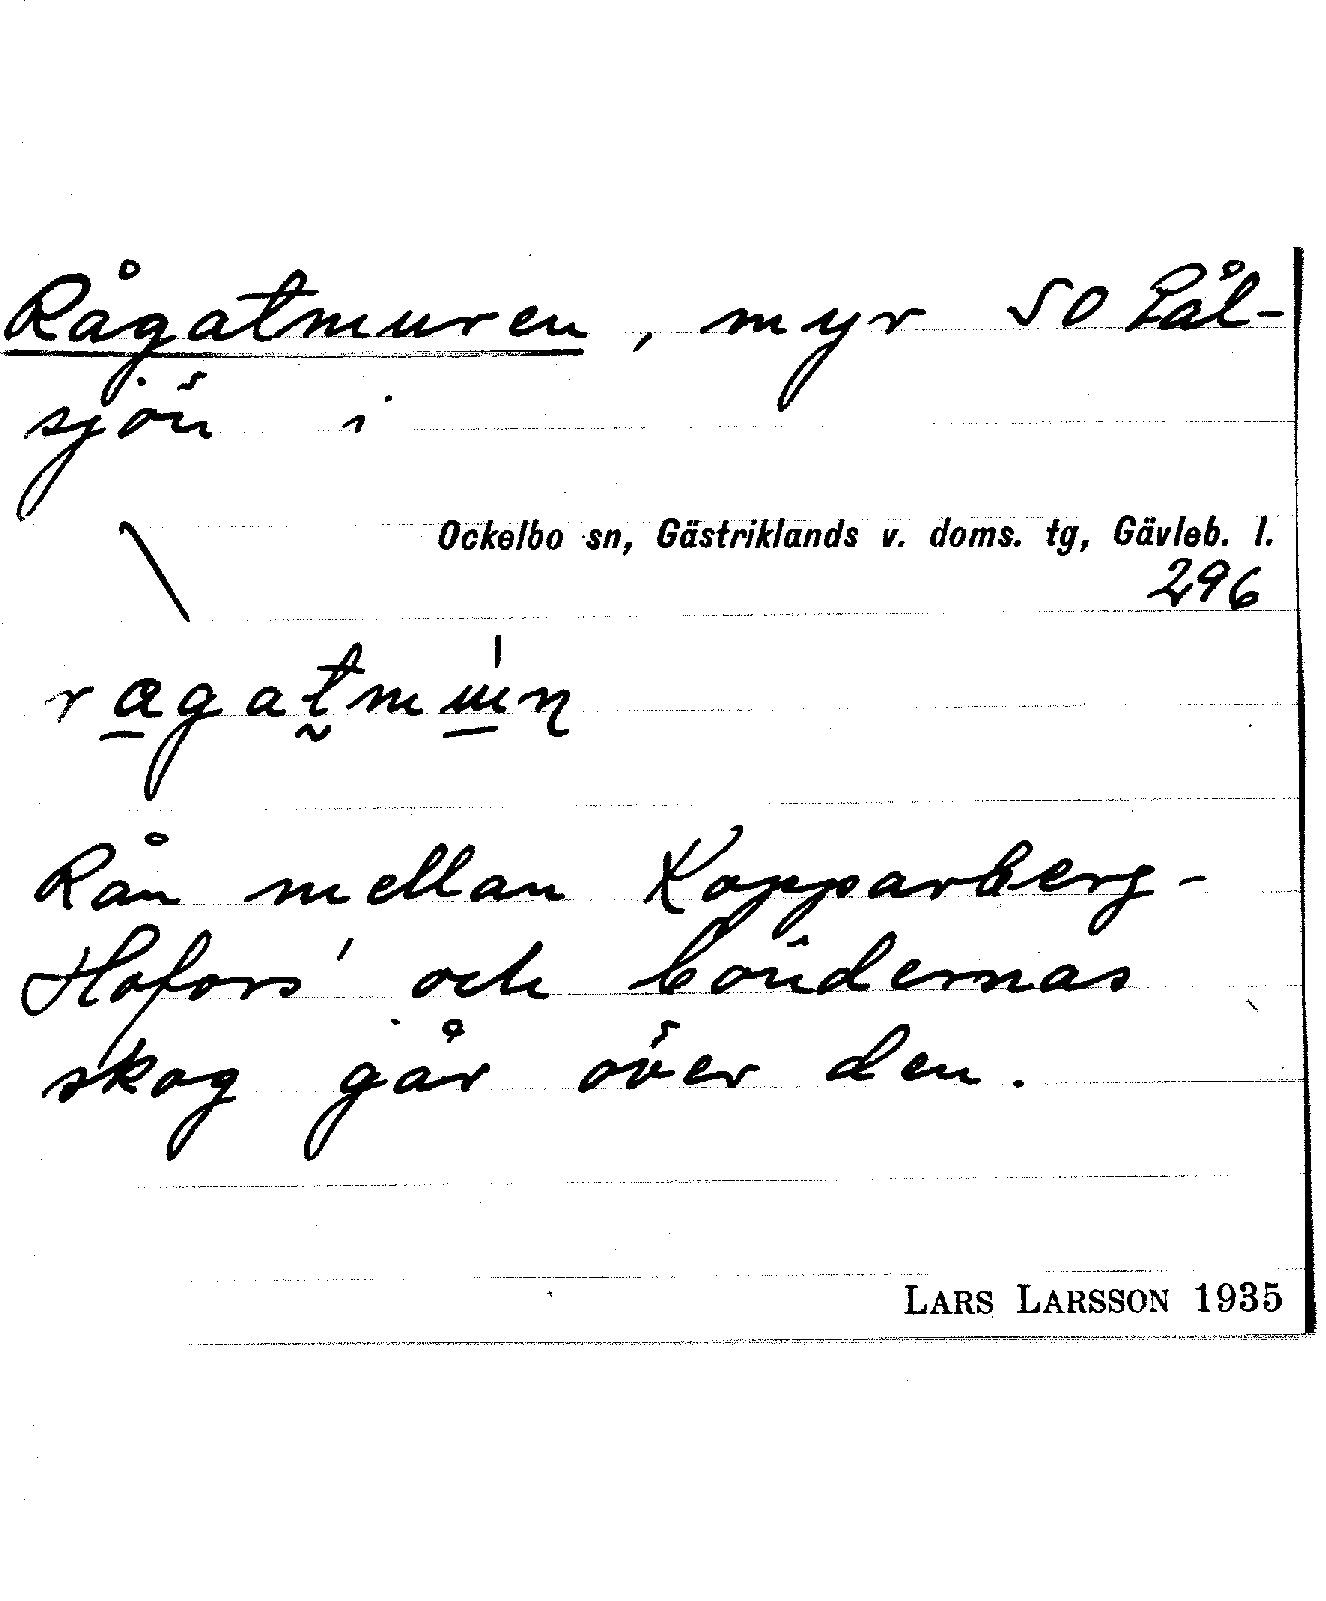 Rågatmuren, myr SO Pål-
sjön i
Ockelbo sn, Gästriklands v. doms. tg, Gävleb. l.
296
Rån mellan Kopparberg-
Hofors' och böndernas
skog går över den.
LARS LARSSON 1935